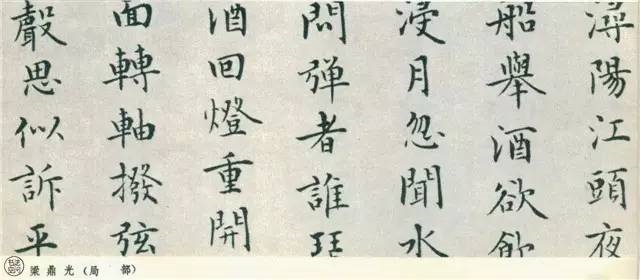 潯陽江頭夜
船舉酒欲飲
浸月忽聞水
問彈者誰琵
酒回燈重開
面轉軸撥弦
聲思似訴平
梁鼎光（局　部）